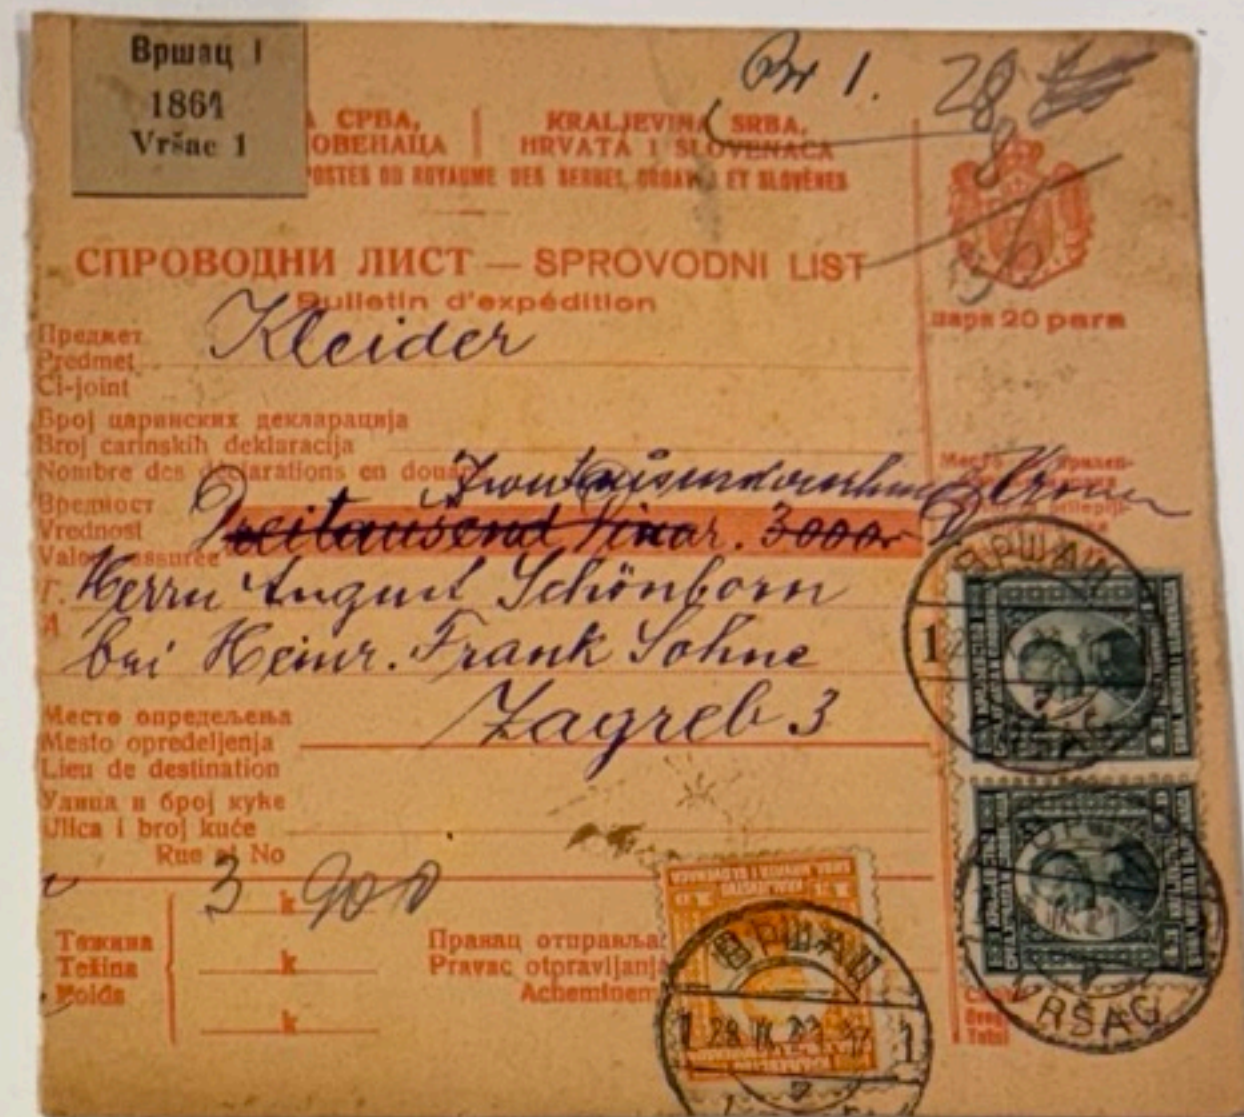 Вршац 1
1861
Vršac 1
Br 1.
28
А СРБА,
ОВЕНАЦА
KRALJEVINA SRBA,
HRVATA I SLOVENACA
POSTES DU ROYAUME DES SERBES, CROATES ET SLOVÈNES
СПРОВОДНИ ЛИСТ — SPROVODNI LIST
Bulletin d'expédition
пара 20 para
Предмет
Predmet
Ci-joint
Kleider
Број царинских декларација
Broj carinskih deklaracija
Nombre des déclarations en douane
Вредност
Vrednost
Valeur assurée
Dreitausend Dinar. 3000
Г.
A
Herrn August Schönborn
bei Heinr. Frank Söhne
Zagreb 3
Место опредељења
Mesto opredeljenja
Lieu de destination
Улица и број куће
Ulica i broj kuće
Rue et No
3 k 900
Тежина
Težina
Poids
k
k
Правац отправља
Pravac otpravljanj
Acheminem
ВРШАЦ
1
ВРШАЦ
VRŠAC
ВРШАЦ
1